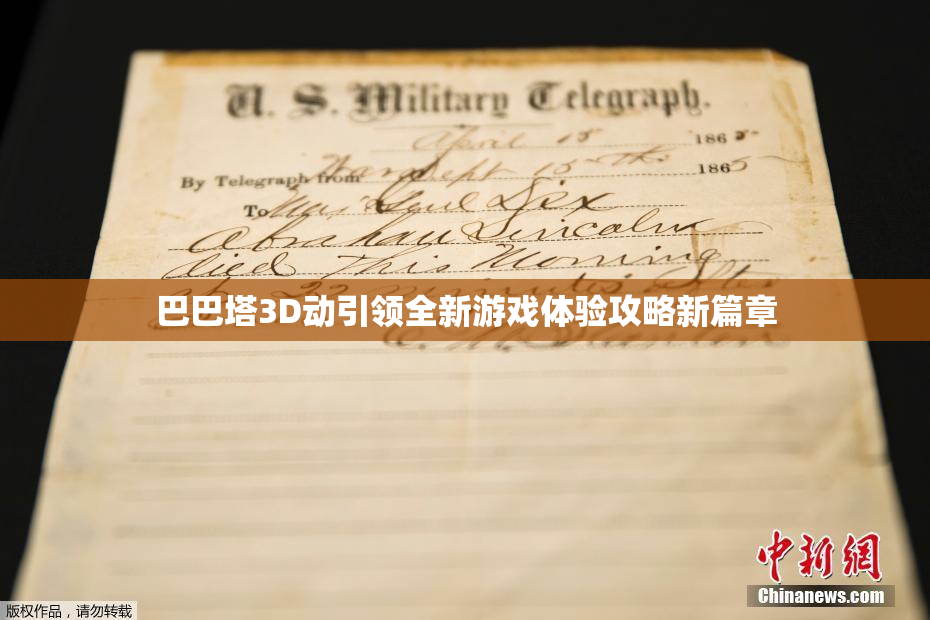 U. S. Military Telegraph.
April 15 1865
By Telegraph from War Dept 15th 1865
To Maj Genl Dix
Abraham Lincoln
died This Morning
at 22 minutes after
巴巴塔3D动引领全新游戏体验攻略新篇章
E. M. Stanton
中新網
Chinanews.com
版权作品，请勿转载